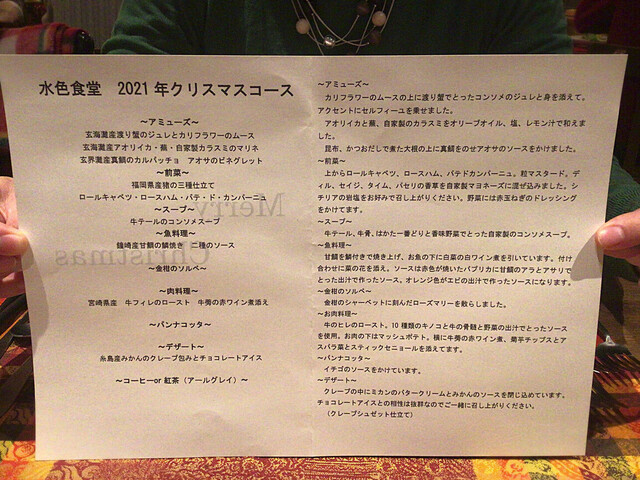 水色食堂 2021年クリスマスコース
～アミューズ～
玄海灘産渡り蟹のジュレとカリフラワーのムース
玄海灘産アオリイカ・蕪・自家製カラスミのマリネ
玄界灘産真鯛のカルパッチョ アオサのビネグレット
～前菜～
福岡県産猪の三種仕立て
ロールキャベツ・ロースハム・パテ・ド・カンパーニュ
～スープ～
牛テールのコンソメスープ
～魚料理～
鐘崎産甘鯛の鱗焼き 二種のソース
～金柑のソルベ～
～肉料理～
宮崎県産 牛フィレのロースト 牛蒡の赤ワイン煮添え
～パンナコッタ～
～デザート～
糸島産みかんのクレープ包みとチョコレートアイス
～コーヒーor 紅茶（アールグレイ）～
Merry
Christmas
～アミューズ～
カリフラワーのムースの上に渡り蟹でとったコンソメのジュレと身を添えて。
アクセントにセルフィーユを乗せました。
アオリイカと蕪、自家製のカラスミをオリーブオイル、塩、レモン汁で和えま
した。
昆布、かつおだしで煮た大根の上に真鯛をのせアオサのソースをかけました。
～前菜～
上からロールキャベツ、ロースハム、パテドカンパーニュ。粒マスタード。デ
ィル、セイジ、タイム、パセリの香草を自家製マヨネーズに混ぜ込みました。シ
チリアの岩塩をお好みで召し上がりください。野菜には赤玉ねぎのドレッシング
をかけてます。
～スープ～
牛テール、牛骨、はかた一番どりと香味野菜でとった自家製のコンソメスープ。
～魚料理～
甘鯛を鱗付きで焼き上げ、お魚の下に白菜の白ワイン煮を引いています。付け
合わせに菜の花を添え。ソースは赤色が焼いたパプリカに甘鯛のアラとアサリで
とった出汁で作ったソース。オレンジ色がエビの出汁で作ったソースになります。
～金柑のソルベ～
金柑のシャーベットに刻んだローズマリーを散らしました。
～お肉料理～
牛のヒレのロースト。10種類のキノコと牛の骨髄と野菜の出汁でとったソース
を使用。お肉の下はマッシュポテト。横に牛蒡の赤ワイン煮。菊芋チップスとア
スパラ菜とスティックセニョールを添えてます。
～パンナコッタ～
イチゴのソースをかけています。
～デザート～
クレープの中にミカンのバタークリームとみかんのソースを閉じ込めています。
チョコレートアイスとの相性は抜群なのでご一緒に召し上がりください。
（クレープシュゼット仕立て）